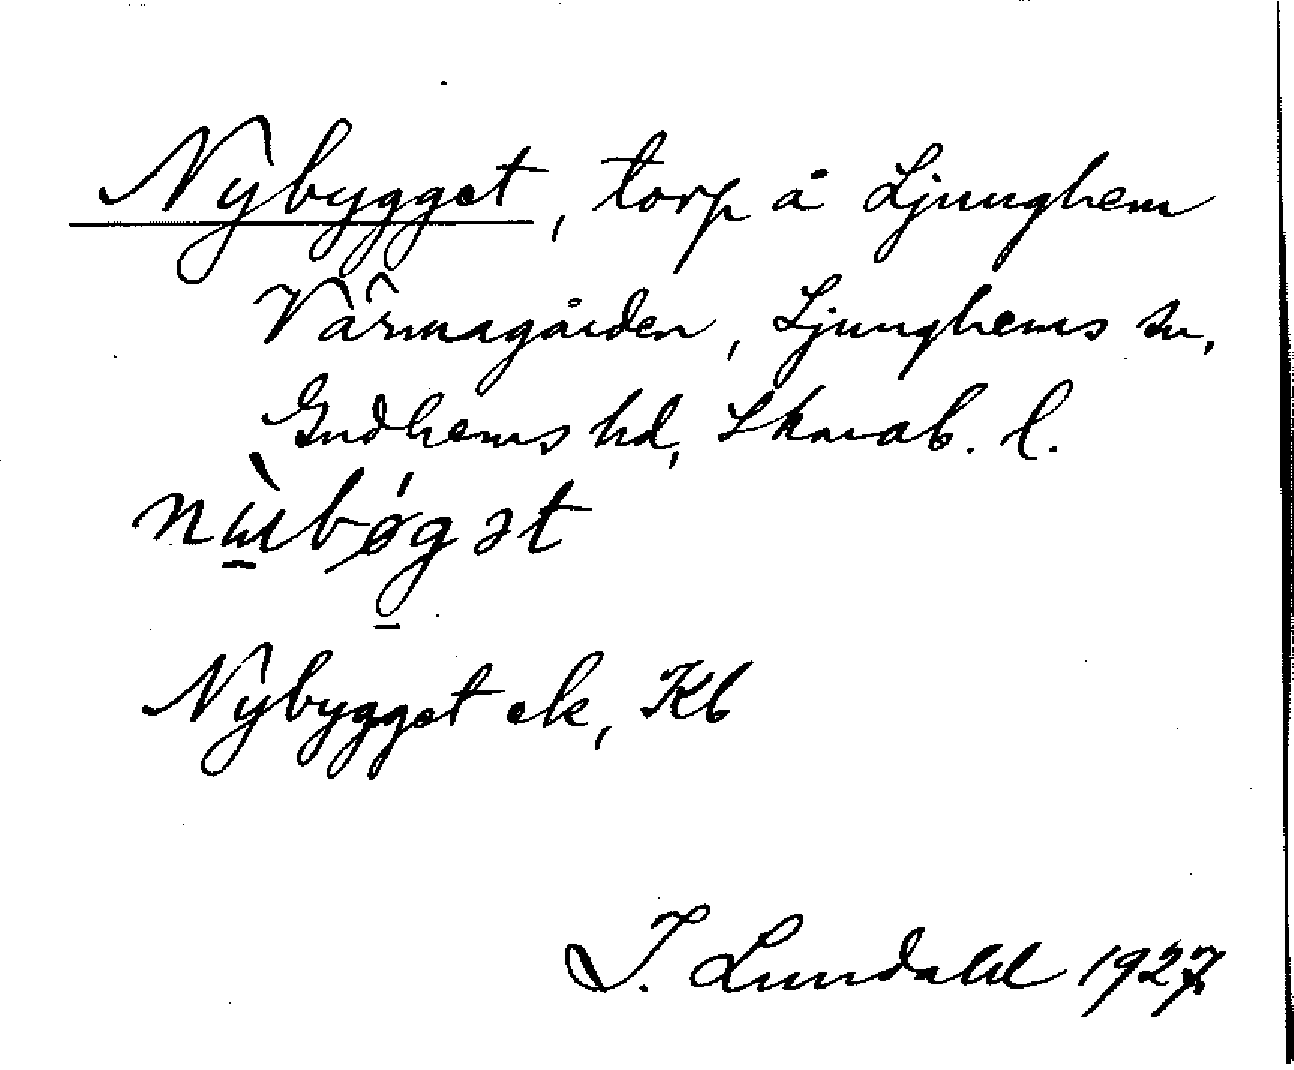 Nybygget, torp å Ljunghem
Värmagården, Ljunghems sn,
Gudhems hd, Skarab. l.
Nybygget ek, Kb
I. Lundahl 1927